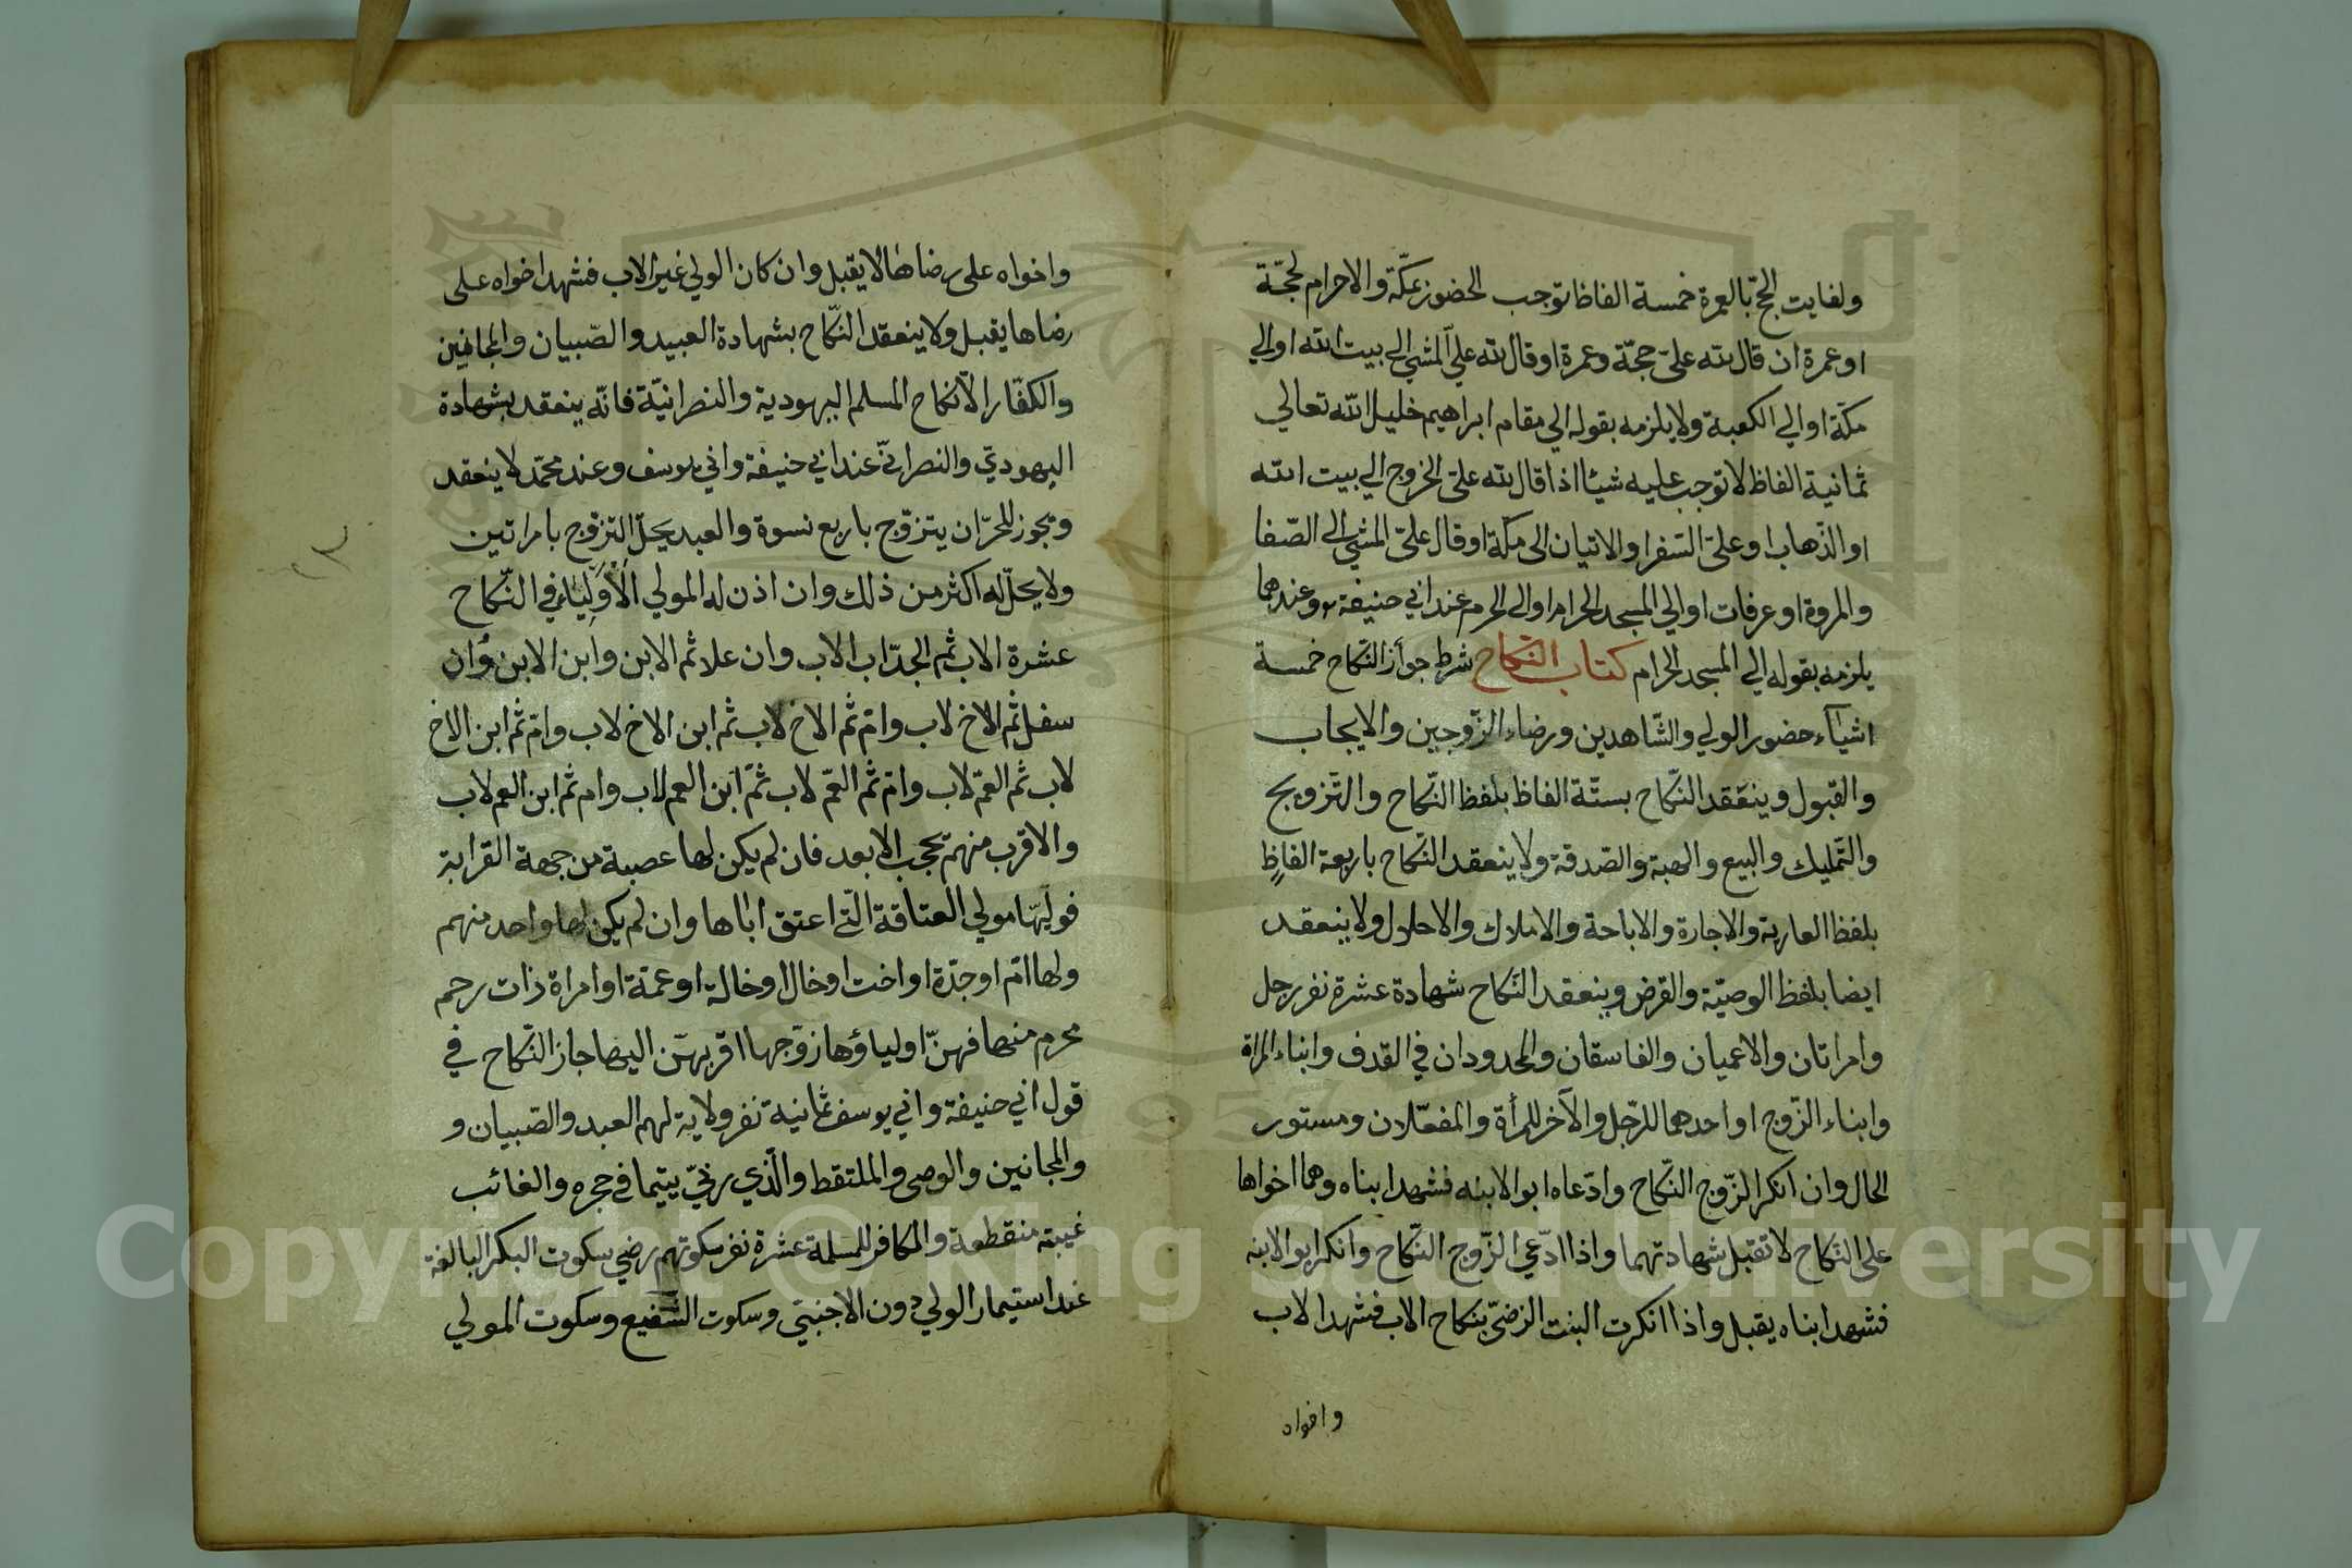 ولفايت الحجّ بالعمرة خمسة الفاظ توجب الحضور بمكّة والاحرام لحجّة
او عمرة ان قال لله علىّ حجّة وعمرة او قال لله علىّ المشي الى بيت الله او الي
مكّة او الي الكعبة ولا يلزمه بقوله الي مقام ابراهيم خليل الله تعالي
ثمانية الفاظ لا توجب عليه شيئا اذا قال لله علىّ الخروج الي بيت الله
او الذّهاب او علىّ السّفر او الاتيان الى مكّة او قال علىّ المشي الى الصّفا
والمروة او عرفات او الي المسجد الحرام او الى الحرم عند ابي حنيفة وعندهما
يلزمه بقوله الي المسجد الحرام كتاب النكاح شرط جواز النكاح خمسة
اشيآء حضور الولي والشّاهدين ورضاء الزّوجين والايجاب
والقبول وينعقد النّكاح بستّة الفاظ بلفظ النّكاح والتّزويج
والتّمليك والبيع والهبة والصّدقة ولا ينعقد النّكاح باربعة الفاظٍ
بلفظ العارية والاجارة والاباحة والاملاك والاحلال ولا ينعقد
ايضا بلفظ الوصيّة والقرض وينعقد النّكاح شهادة عشرة نفر رجل
وامراتان والاعميان والفاسقان والمحدودان في القدف وابناء المراة
وابناء الزّوج او احدهما للرّجل والآخر للمرأة والمفعّلان ومستور
الحال وان انكر الزّوج النّكاح وادّعاه ابو الابنه فشهد ابناه وهما اخواها
على النّكاح لا تقبل شهادتهما واذا ادّعي الزّوج النّكاح وانكر ابو الابنه
فشهد ابناه يقبل واذا انكرت البنت الرضىّ بنكاح الاب فشهد الاب
واخواه
واخواه على رضاها لا يقبل وان كان الولي غير الاب فشهد اخواه على
رضاها يقبل ولا ينعقد النّكاح بشهادة العبيد والصّبيان والمجانين
والكفّار الّا نكاح المسلم اليهودية والنصرانيّة فانّه ينعقد بشهادة
اليهوديّ والنصرانيّ عند ابي حنيفة وابي يوسف وعند محمّد لا ينعقد
ويجوز للحرّ ان يتزوّج باربع نسوة والعبد يحلّ التزوّج بامراتين
ولا يحلّ له اكثر من ذلك وان اذن له المولي الاولياء في النّكاح
عشرة الاب ثم الجدّ اب الاب وان علا ثم الابن وابن الابن وان
سفل ثم الاخ لاب وامّ ثم الاخ لاب ثم ابن الاخ لاب وامّ ثم ابن الاخ
لاب ثم العمّ لاب وامّ ثم العمّ لاب ثمّ ابن العم لاب وام ثم ابن العم لاب
والاقرب منهم يحجب الابعد فان لم يكن لها عصبة من جهة القرابة
فوليّها مولي العتاقة الّتي اعتق اباها وان لم يكن لها واحد منهم
ولها امّ او جدّة او اخت او خال او خالة او عمّة او امراة ذات رحم
محرم منها فهنّ اولياؤها زوّجها اقربهنّ اليها جاز النّكاح في
قول ابي حنيفة وابي يوسف ثمانية نفر ولاية لهم العبد والصّبيان و
والمجانين والوصى والملتقط والّذي ربّي يتيما في حجره والغائب
غيبته منقطعة والكافر للمسلمة عشرة نفر سكوتهم رضي سكوت البكر البالغة
عند استيمار الولي دون الاجنبيّ وسكوت الشّفيع وسكوت المولي
Copyright © King Saud University
1957